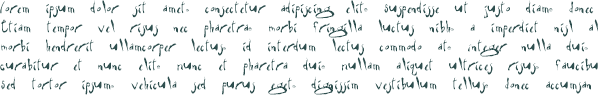 lorem ipsum dolor sit amet. consectetur adipiscing elit. suspendisse ut justo diam. donec
Etiam tempor vel risus nec pharetra. morbi fringilla luctus nibh. a imperdiet nisl al
morbi hendrerit ullamcorper lectus. id interdum lectus commodo at. integer nulla dui.
curabitur et nunc elit. nunc et pharetra dui. nullam aliquet ultrices risus. faucibu
sed tortor ipsum. vehicula sed purus eget. dignissim vestibulum tellus. donec accumsan